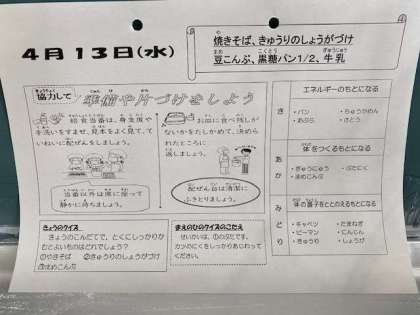 4月13日(水)
焼きそば、きゅうりのしょうがづけ
豆こんぶ、黒糖パン1/2、牛乳
協力して 準備や片づけをしよう
給食当番は、身支度や
手洗いをすませ、見本をよく見て、て
いねいに配ぜんをしましょう。
当番以外は席に座って
静かに待ちましょう。
お皿に食べ残しが
ないかをたしかめて、決めら
れたところに
返しましょう。
配ぜん台は清潔に
ふきとりましょう。
き
エネルギーのもとになる
・パン
・ちゅうかめん
・あぶら
・さとう
あか
体をつくるもとになる
・ぎゅうにゅう
・ぶたにく
・まめこんぶ
みどり
体の調子をととのえるもとになる
・キャベツ
・たまねぎ
・ピーマン
・にんじん
・きゅうり
・しょうが
きょうのクイズ
きょうのこんだてで、とくにしっかりか
むとよいものはどれでしょう?
①やきそば ②きゅうりのしょうがづけ
③まめこんぶ
まえのひのクイズのこたえ
せいかいは、①のぶたです。
カツのにくをしっかりあじわってください。